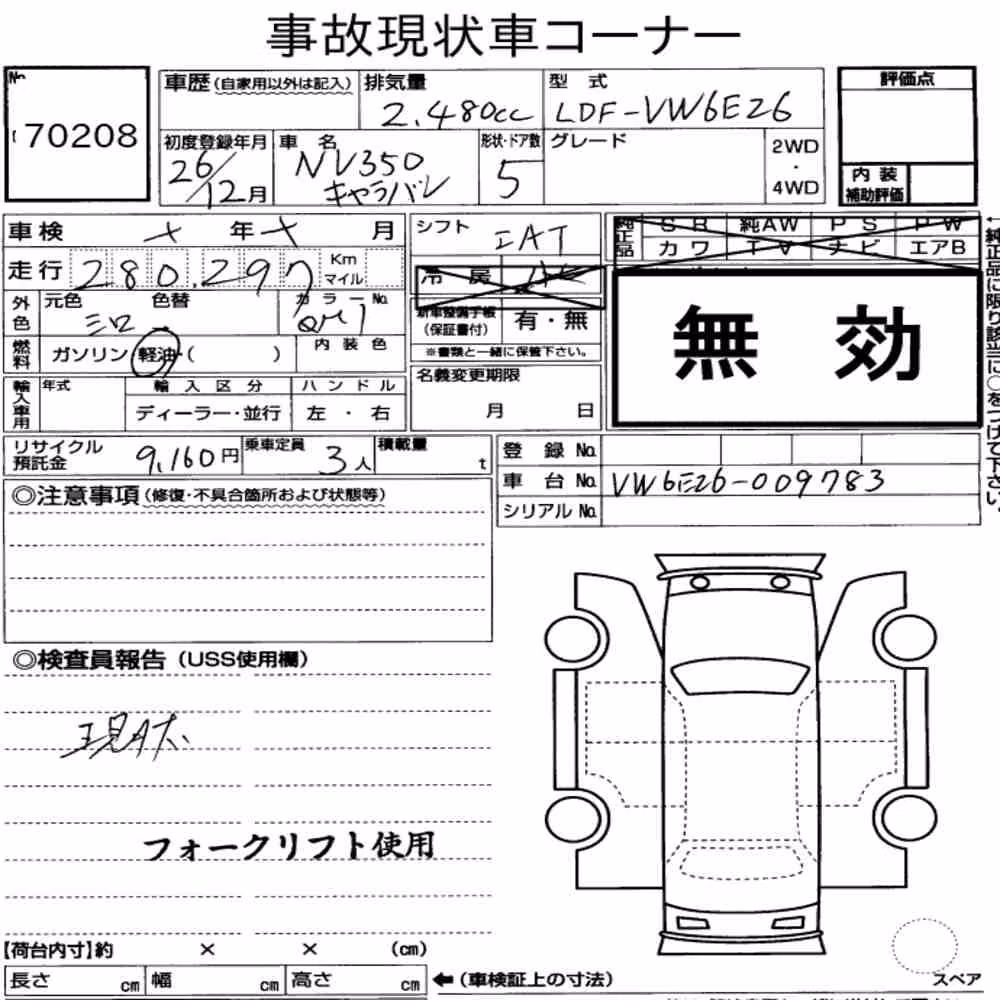 事故現状車コーナー
No. 70208
車歴(自家用以外は記入) 排気量 2.480cc 型式 LDF-VW6E26 評価点
初度登録年月 26/12月 車名 NV350 キャラバン 形状・ドア数 5 グレード 2WD・4WD
内装補助評価
車検 × 年 × 月 シフト IAT 純正品 SR 純AW PS PW
カワ TV ナビ エアB
走行 280.297 Km マイル 冷房
外色 元色 シロ 色替 カラーNo. QM1 新車整備手帳(保証書付) 有・無
※書類と一緒に保管下さい。
無効
燃料 ガソリン 軽油 ( ) 内装色
輸入車用 年式 輸入区分 ハンドル 名義変更期限
ディーラー・並行 左・右 月 日
←純正品に限り該当に○をつけて下さい。
リサイクル預託金 9,160円 乗車定員 3人 積載量 t 登録No.
車台No. VW6E26-009783
シリアルNo.
◎注意事項(修復・不具合箇所および状態等)
◎検査員報告(USS使用欄)
現状
フォークリフト使用
【荷台内寸】約 × × (cm)
長さ cm 幅 cm 高さ cm ←(車検証上の寸法)
スペア